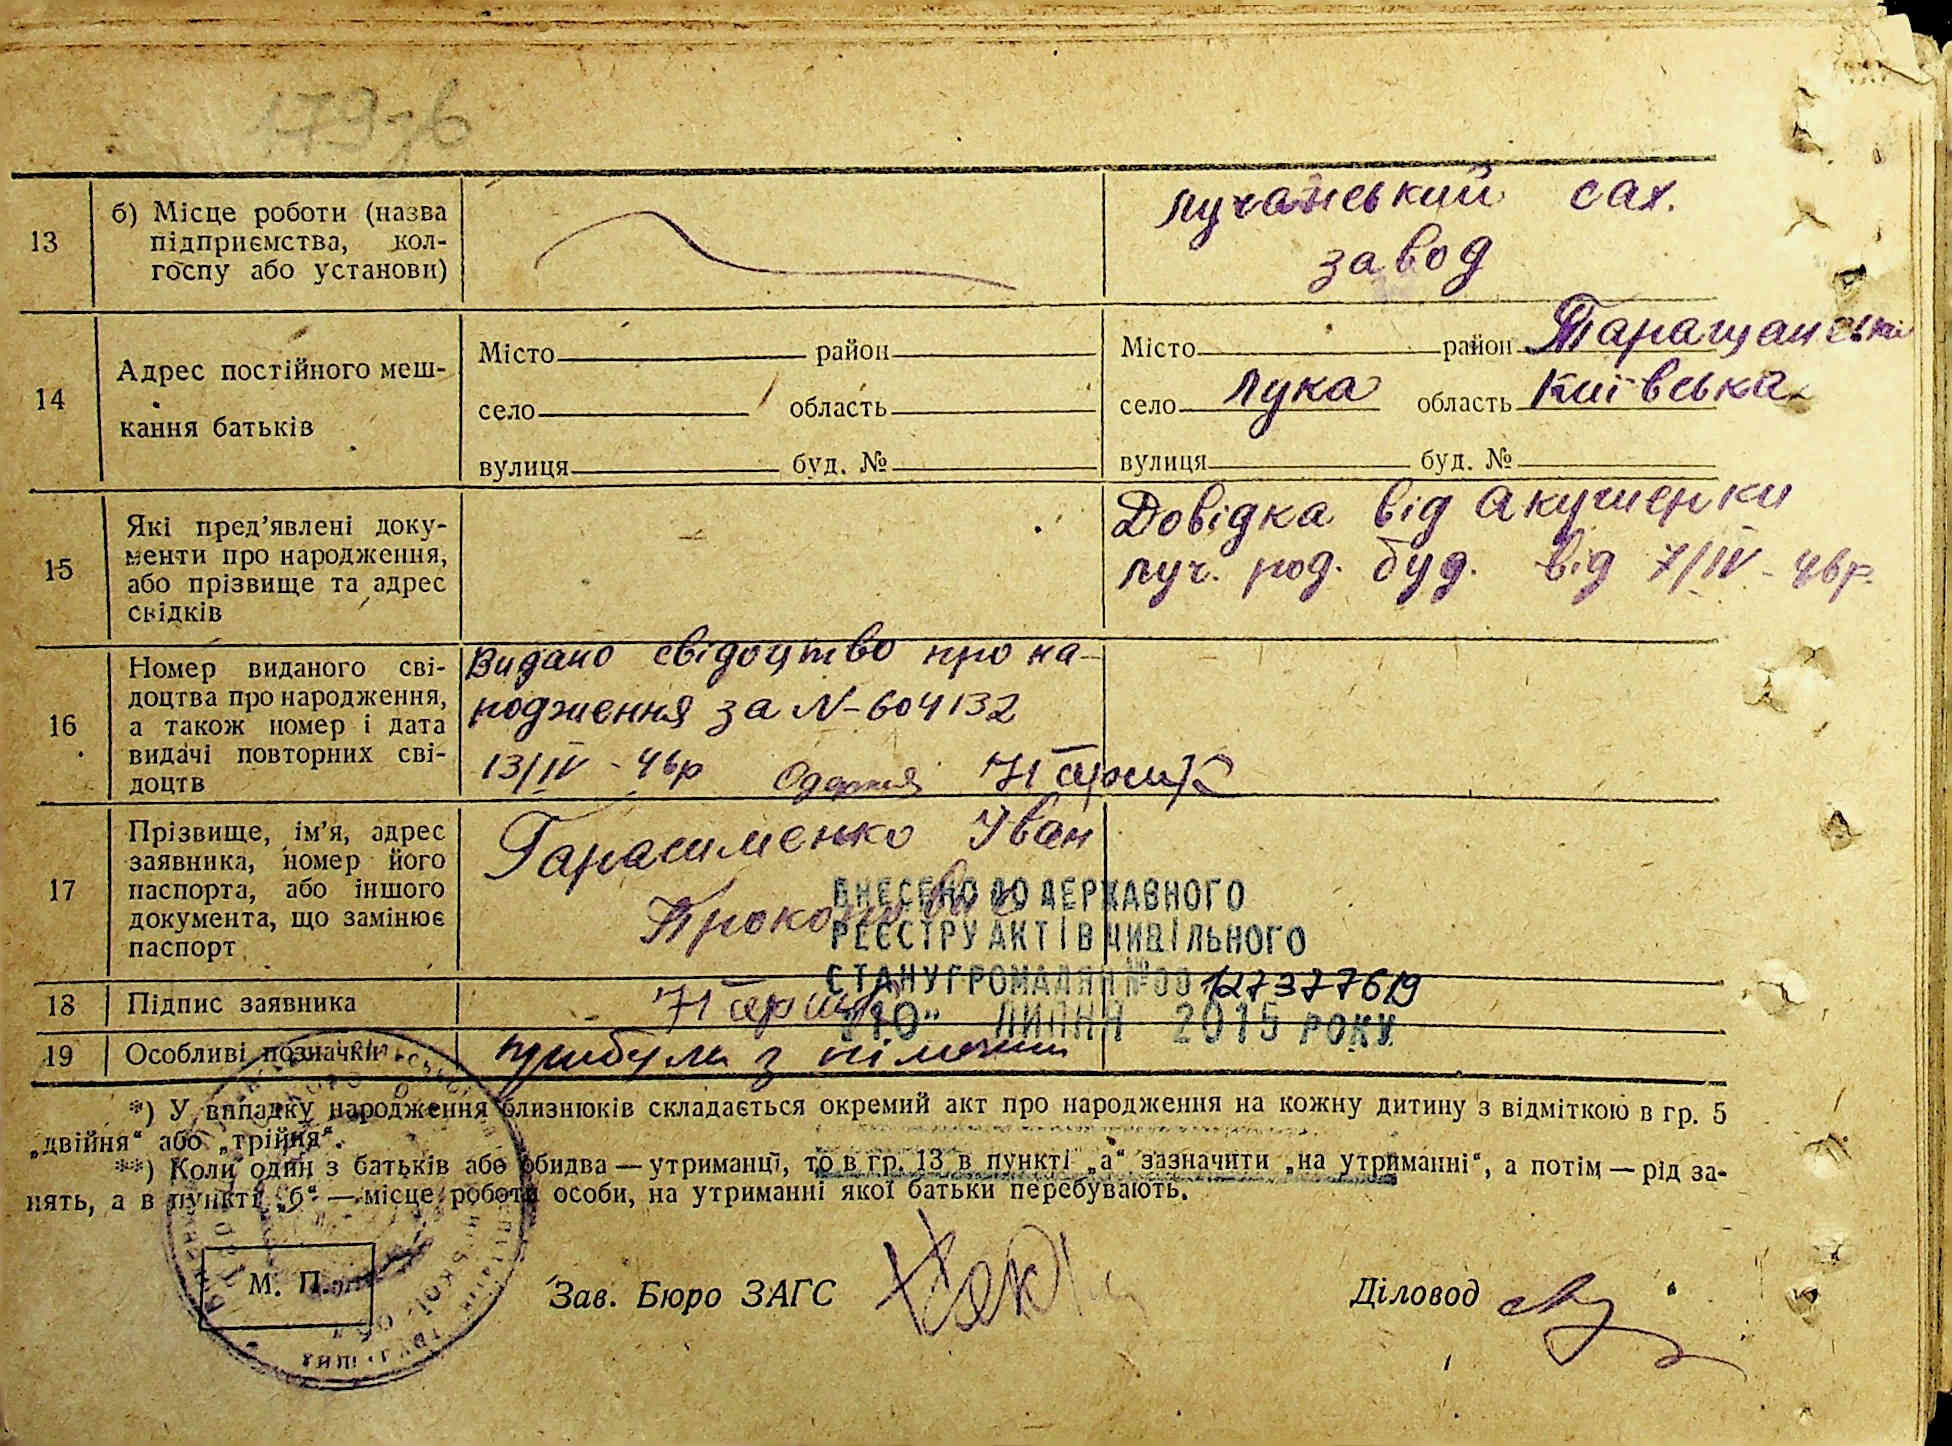 179зв
13 б) Місце роботи (назва
підприємства, кол-
госпу або установи)
Лучанський сах.
завод
14 Адрес постійного меш-
кання батьків
Місто район
село область
вулиця буд. №
Місто район Таращанський
село Лука область Київська
вулиця буд. №
15 Які пред’явлені доку-
менти про народження,
або прізвище та адрес
свідків
Довідка від акушерки
луч. род. буд. від 7/IV - 46р.
16 Номер виданого сві-
доцтва про народження,
а також номер і дата
видачі повторних сві-
доцтв
Видано свідоцтво про на-
родження за N-604132
13/IV - 46р
17 Прізвище, ім’я, адрес
заявника, номер його
паспорта, або іншого
документа, що замінює
паспорт
Гарасименко Іван
Прокопович
ВНЕСЕНО ДО ДЕРЖАВНОГО
РЕЄСТРУ АКТІВ ЦИВІЛЬНОГО
СТАНУ ГРОМАДЯН №00127377619
"10" ЛИПНЯ 2015 РОКУ
18 Підпис заявника
19 Особливі позначки
прибула з німеччини
*) У випадку народження близнюків складається окремий акт про народження на кожну дитину з відміткою в гр. 5
„двійня“ або „трійня“.
**) Коли один з батьків або обидва — утриманці, то в гр. 13 в пункті „а“ зазначити „на утриманні“, а потім — рід за-
нять, а в пункті „б“ — місце роботи особи, на утриманні якої батьки перебувають.
М. П.
Зав. Бюро ЗАГС
Діловод